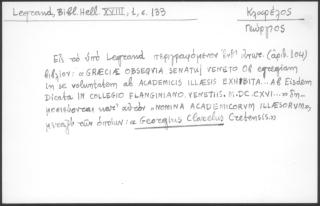 Legrand, Bibl. Hell. XVIII, 1, σ. 133
Κλαρέλος
Γεώργιος
Εἰς τὸ ὑπὸ Legrand περιγραφόμενον ἐνθ' ἀνωτ. (ἀριθ. 104)
βιβλίον: «GRÆCIÆ OBSEQVIA SENATVJ VENETO Ob egregiam
in se voluntatem ab ACADEMICIS ILLÆSIS EXHIBITA... Ab Eisdem
Dicata IN COLLEGIO FLANGINIANO. VENETIIS, M.DC.CXVI...» δη-
μοσιεύονται κατ' αὐτὸν «NOMINA ACADEMICORVM ILLÆSORVM»,
μεταξὺ τῶν ὁποίων: «Georgius Clarelus Cretensis.»